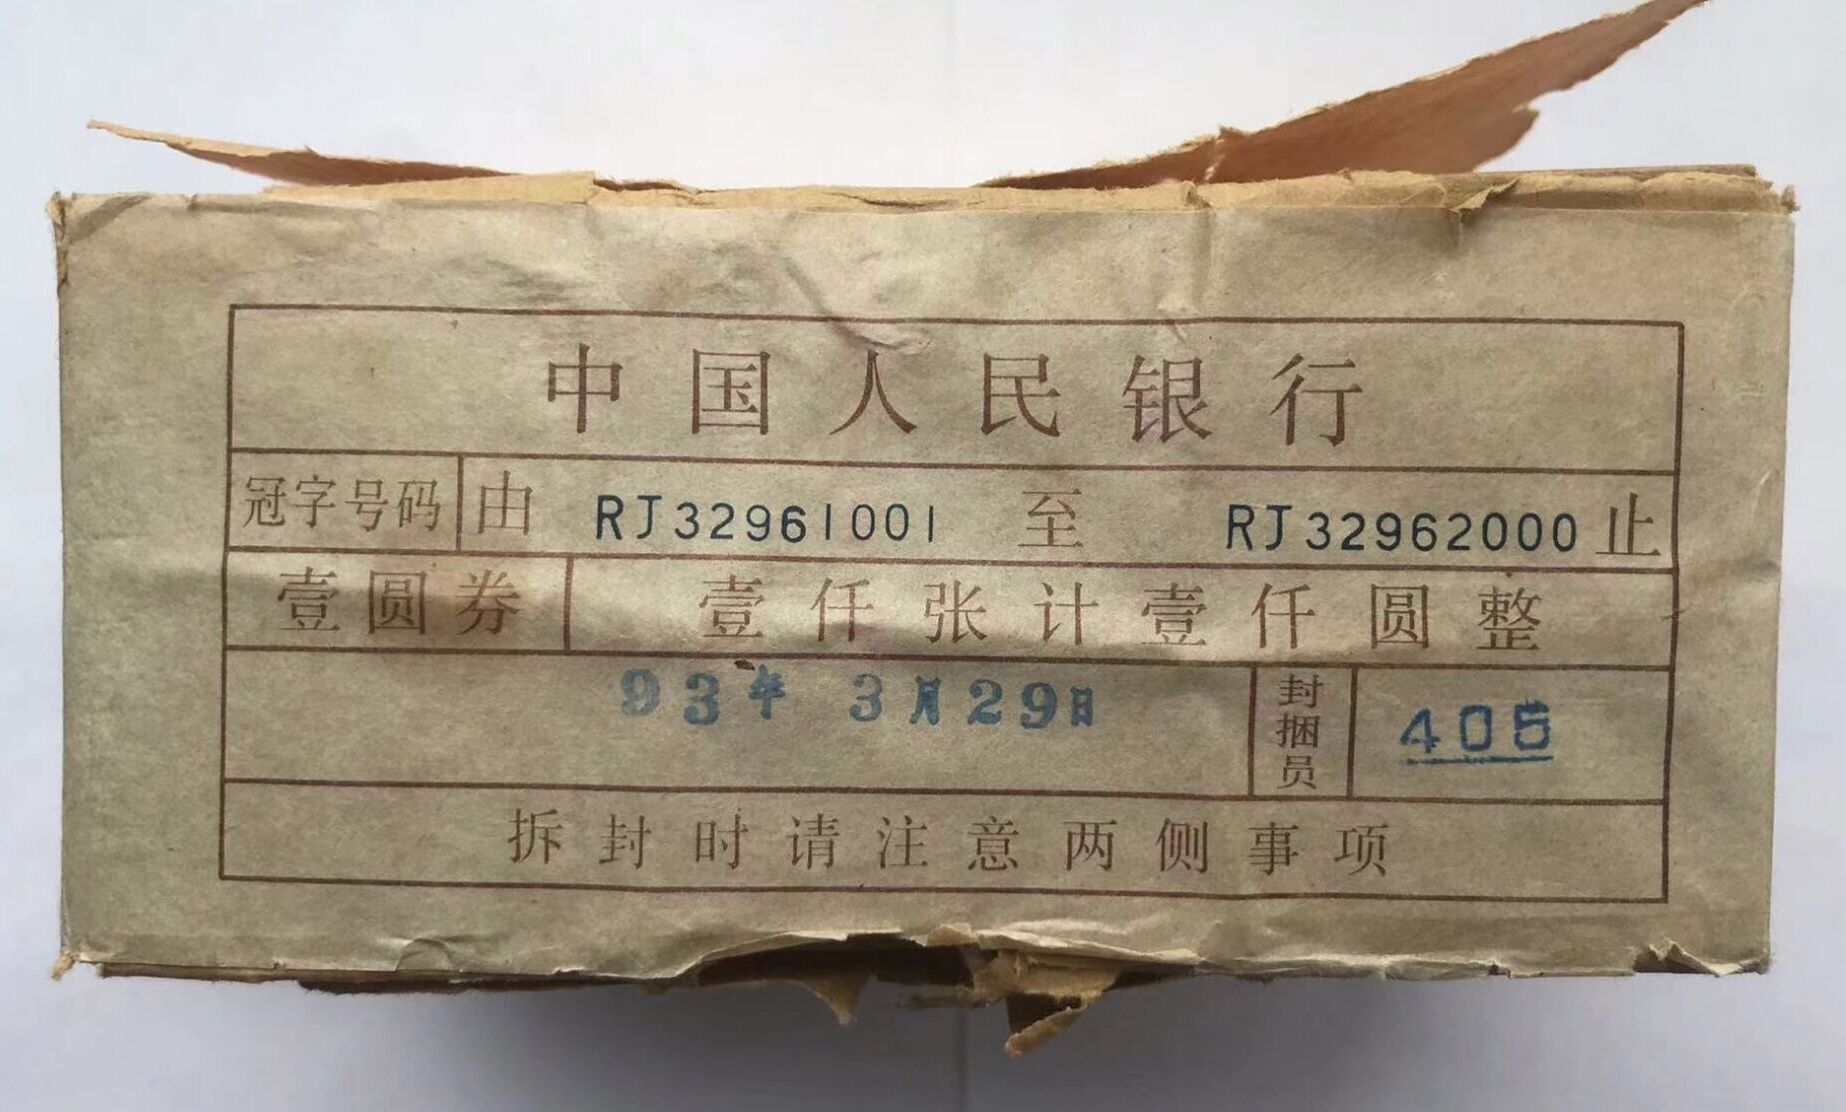 中国人民银行
冠字号码 由 RJ32961001 至 RJ32962000 止
壹圆券 壹仟张计壹仟圆整
93年 3月29日 封捆员 405
拆封时请注意两侧事项